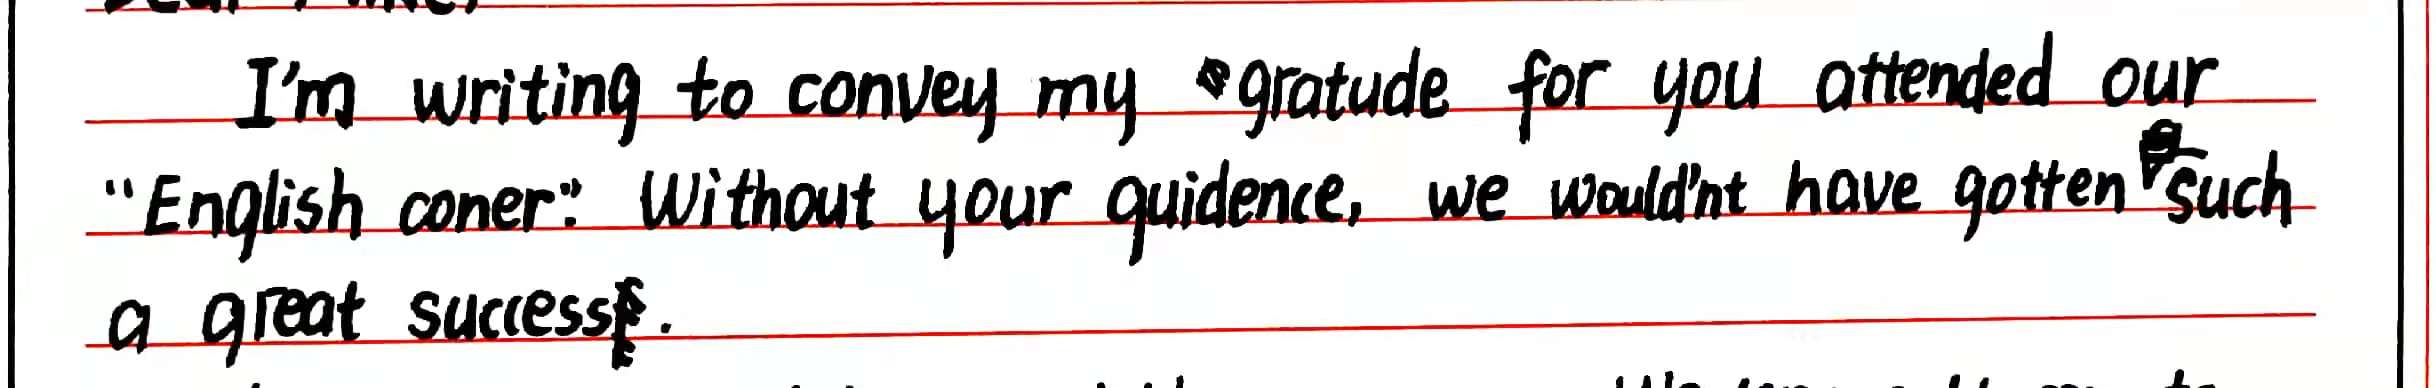 I'm writing to convey my gratude for you attended our
"English coner". Without your guidence, we would'nt have gotten such
a great success.